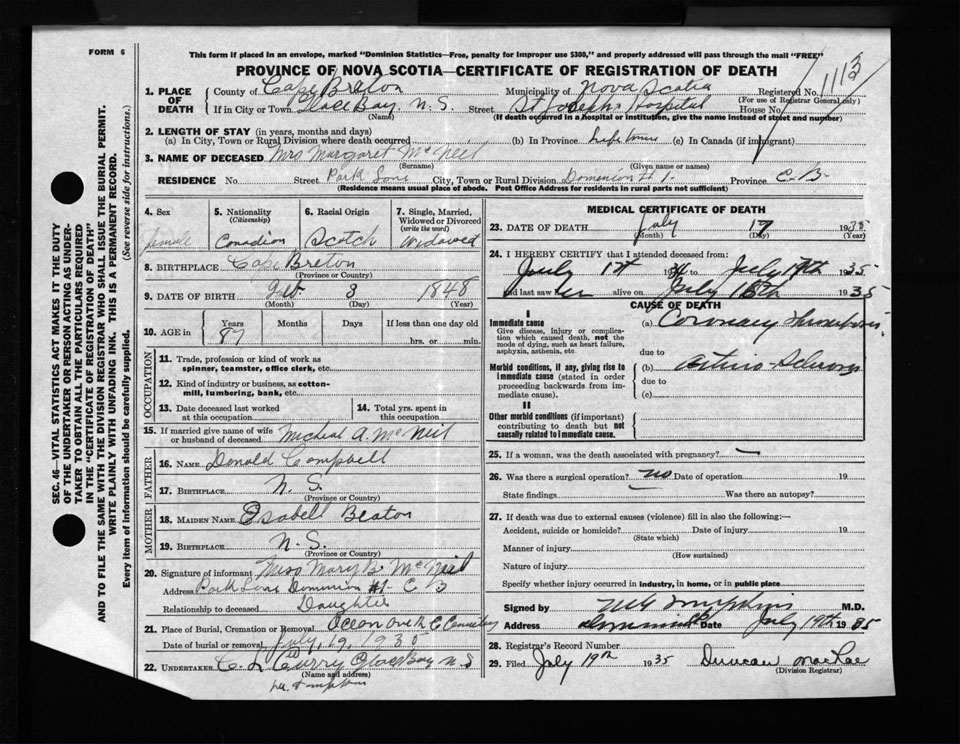 FORM 6
This form if placed in an envelope, marked "Dominion Statistics—Free, penalty for improper use $300," and properly addressed will pass through the mail "FREE"
PROVINCE OF NOVA SCOTIA—CERTIFICATE OF REGISTRATION OF DEATH
SEC. 46—VITAL STATISTICS ACT MAKES IT THE DUTY
OF THE UNDERTAKER OR PERSON ACTING AS UNDER-
TAKER TO OBTAIN ALL THE PARTICULARS REQUIRED
IN THE "CERTIFICATE OF REGISTRATION OF DEATH"
AND TO FILE THE SAME WITH THE DIVISION REGISTRAR WHO SHALL ISSUE THE BURIAL PERMIT.
WRITE PLAINLY WITH UNFADING INK. THIS IS A PERMANENT RECORD.
Every item of information should be carefully supplied. (See reverse side for instructions.)
1. PLACE OF DEATH
County of Cape Breton Municipality of Nova Scotia Registered No. 1113
(For use of Registrar General only)
If in City or Town Glace Bay. N. S. Street St Joseph's Hospital House No.
(Name) (If death occurred in a hospital or institution, give the name instead of street and number)
2. LENGTH OF STAY (in years, months and days)
(a) In City, Town or Rural Division where death occurred (b) In Province Life time (c) In Canada (if immigrant)
3. NAME OF DECEASED Mrs Margaret McNeil
(Surname) (Given name or names)
RESIDENCE No. Street Park Lane City, Town or Rural Division Dominion #1. Province C. B.
(Residence means usual place of abode. Post Office Address for residents in rural parts not sufficient)
4. Sex
female
5. Nationality
(Citizenship)
Canadian
6. Racial Origin
Scotch
7. Single, Married,
Widowed or Divorced
(write the word)
Widowed
8. BIRTHPLACE Cape Breton
(Province or Country)
9. DATE OF BIRTH Feb. 3 1848
(Month) (Day) (Year)
10. AGE in Years Months Days If less than one day old
87 hrs. or min.
OCCUPATION
11. Trade, profession or kind of work as
spinner, teamster, office clerk, etc.
12. Kind of industry or business, as cotton-
mill, lumbering, bank, etc.
13. Date deceased last worked
at this occupation
14. Total yrs. spent in
this occupation
15. If married give name of wife
or husband of deceased Micheal A. McNeil
FATHER
16. NAME Donald Campbell
17. BIRTHPLACE N. S.
(Province or Country)
MOTHER
18. MAIDEN NAME Isabell Beaton
19. BIRTHPLACE N. S.
(Province or Country)
20. Signature of informant Miss Mary B. McNeil
Address Park Lane Dominion #1 C B
Relationship to deceased Daughter
21. Place of Burial, Cremation or Removal Ocean Cemetery
Date of burial or removal July, 19, 193
22. UNDERTAKER C. L. Curry Glace Bay N. S
(Name and address)
MEDICAL CERTIFICATE OF DEATH
23. DATE OF DEATH July 17 19
(Month) (Day) (Year)
24. I HEREBY CERTIFY that I attended deceased from:
July 19 to July 17th 1935
and last saw her alive on July 1935
CAUSE OF DEATH
I
Immediate cause
Give disease, injury or complica-
tion which caused death, not the
mode of dying, such as heart failure,
asphyxia, asthenia, etc.
(a) Coronary Thrombosis
due to
Morbid conditions, if any, giving rise to
immediate cause (stated in order
proceeding backwards from im-
mediate cause).
(b) Arterio-Sclerosis
due to
(c)
II
Other morbid conditions (if important)
contributing to death but not
causally related to immediate cause.
25. If a woman, was the death associated with pregnancy? —
26. Was there a surgical operation? no Date of operation 19
State findings Was there an autopsy?
27. If death was due to external causes (violence) fill in also the following:—
Accident, suicide or homicide? Date of injury 19
(State which)
Manner of injury
(How sustained)
Nature of injury
Specify whether injury occurred in industry, in home, or in public place
Signed by M G Tompkins M.D.
Address Dominion Date July 19th 1935
28. Registrar's Record Number
29. Filed July 19th 1935 Duncan MacRae
(Division Registrar)